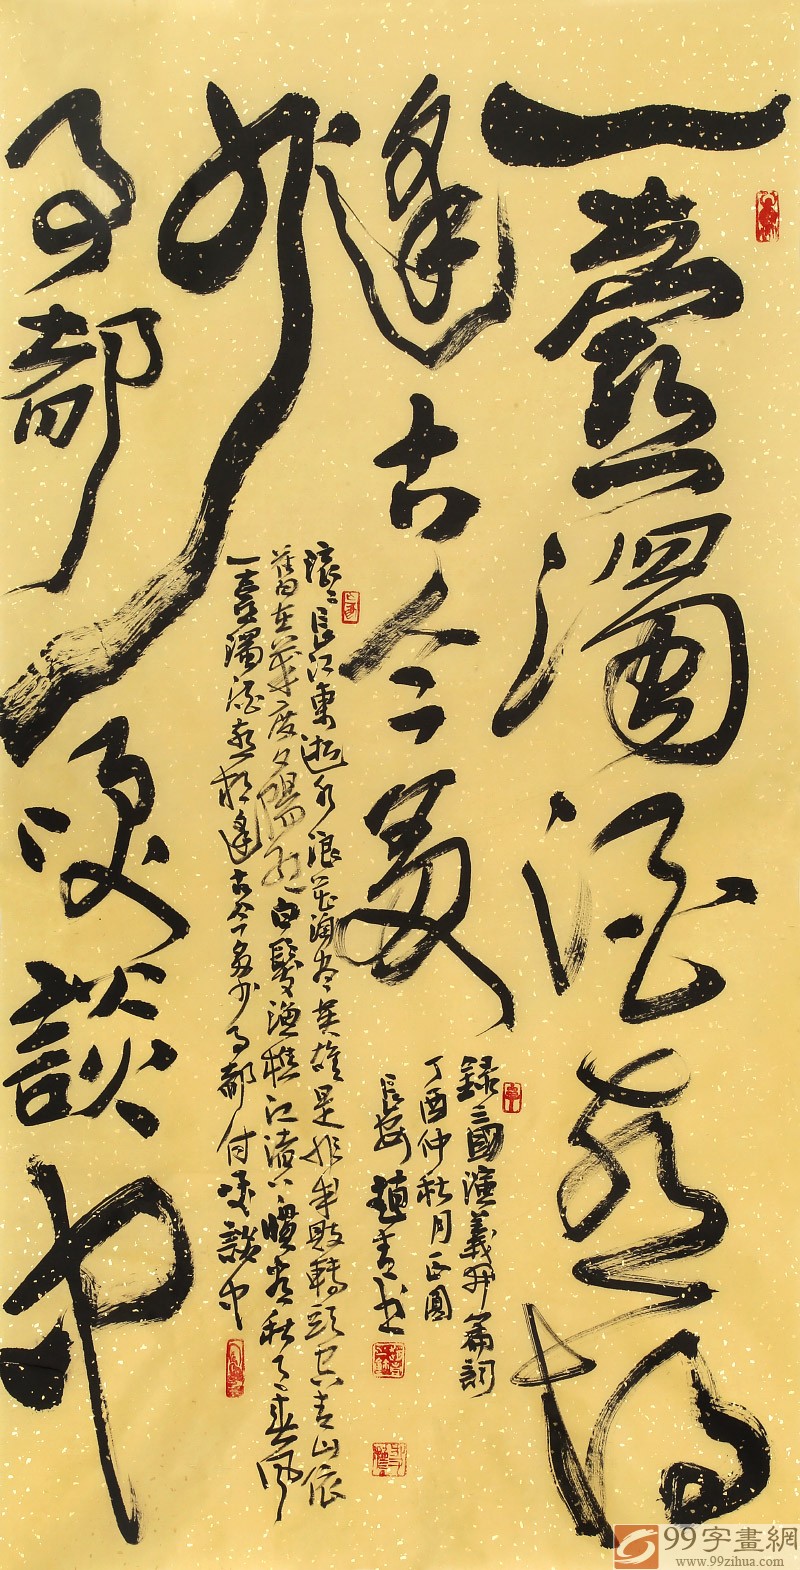 一壺濁酒喜相
逢古今多
少
事都笑談中
滾々長江東逝水浪花淘盡英雄是非成敗轉頭空青山依
舊在幾度夕陽紅白髮漁樵江渚上慣看秋月春風
一壺濁酒喜相逢古今多少事都付笑談中
錄三國演義開篇詞
丁酉仲秋月正圓
長安趙青書
99字畫網
www.99zihua.com